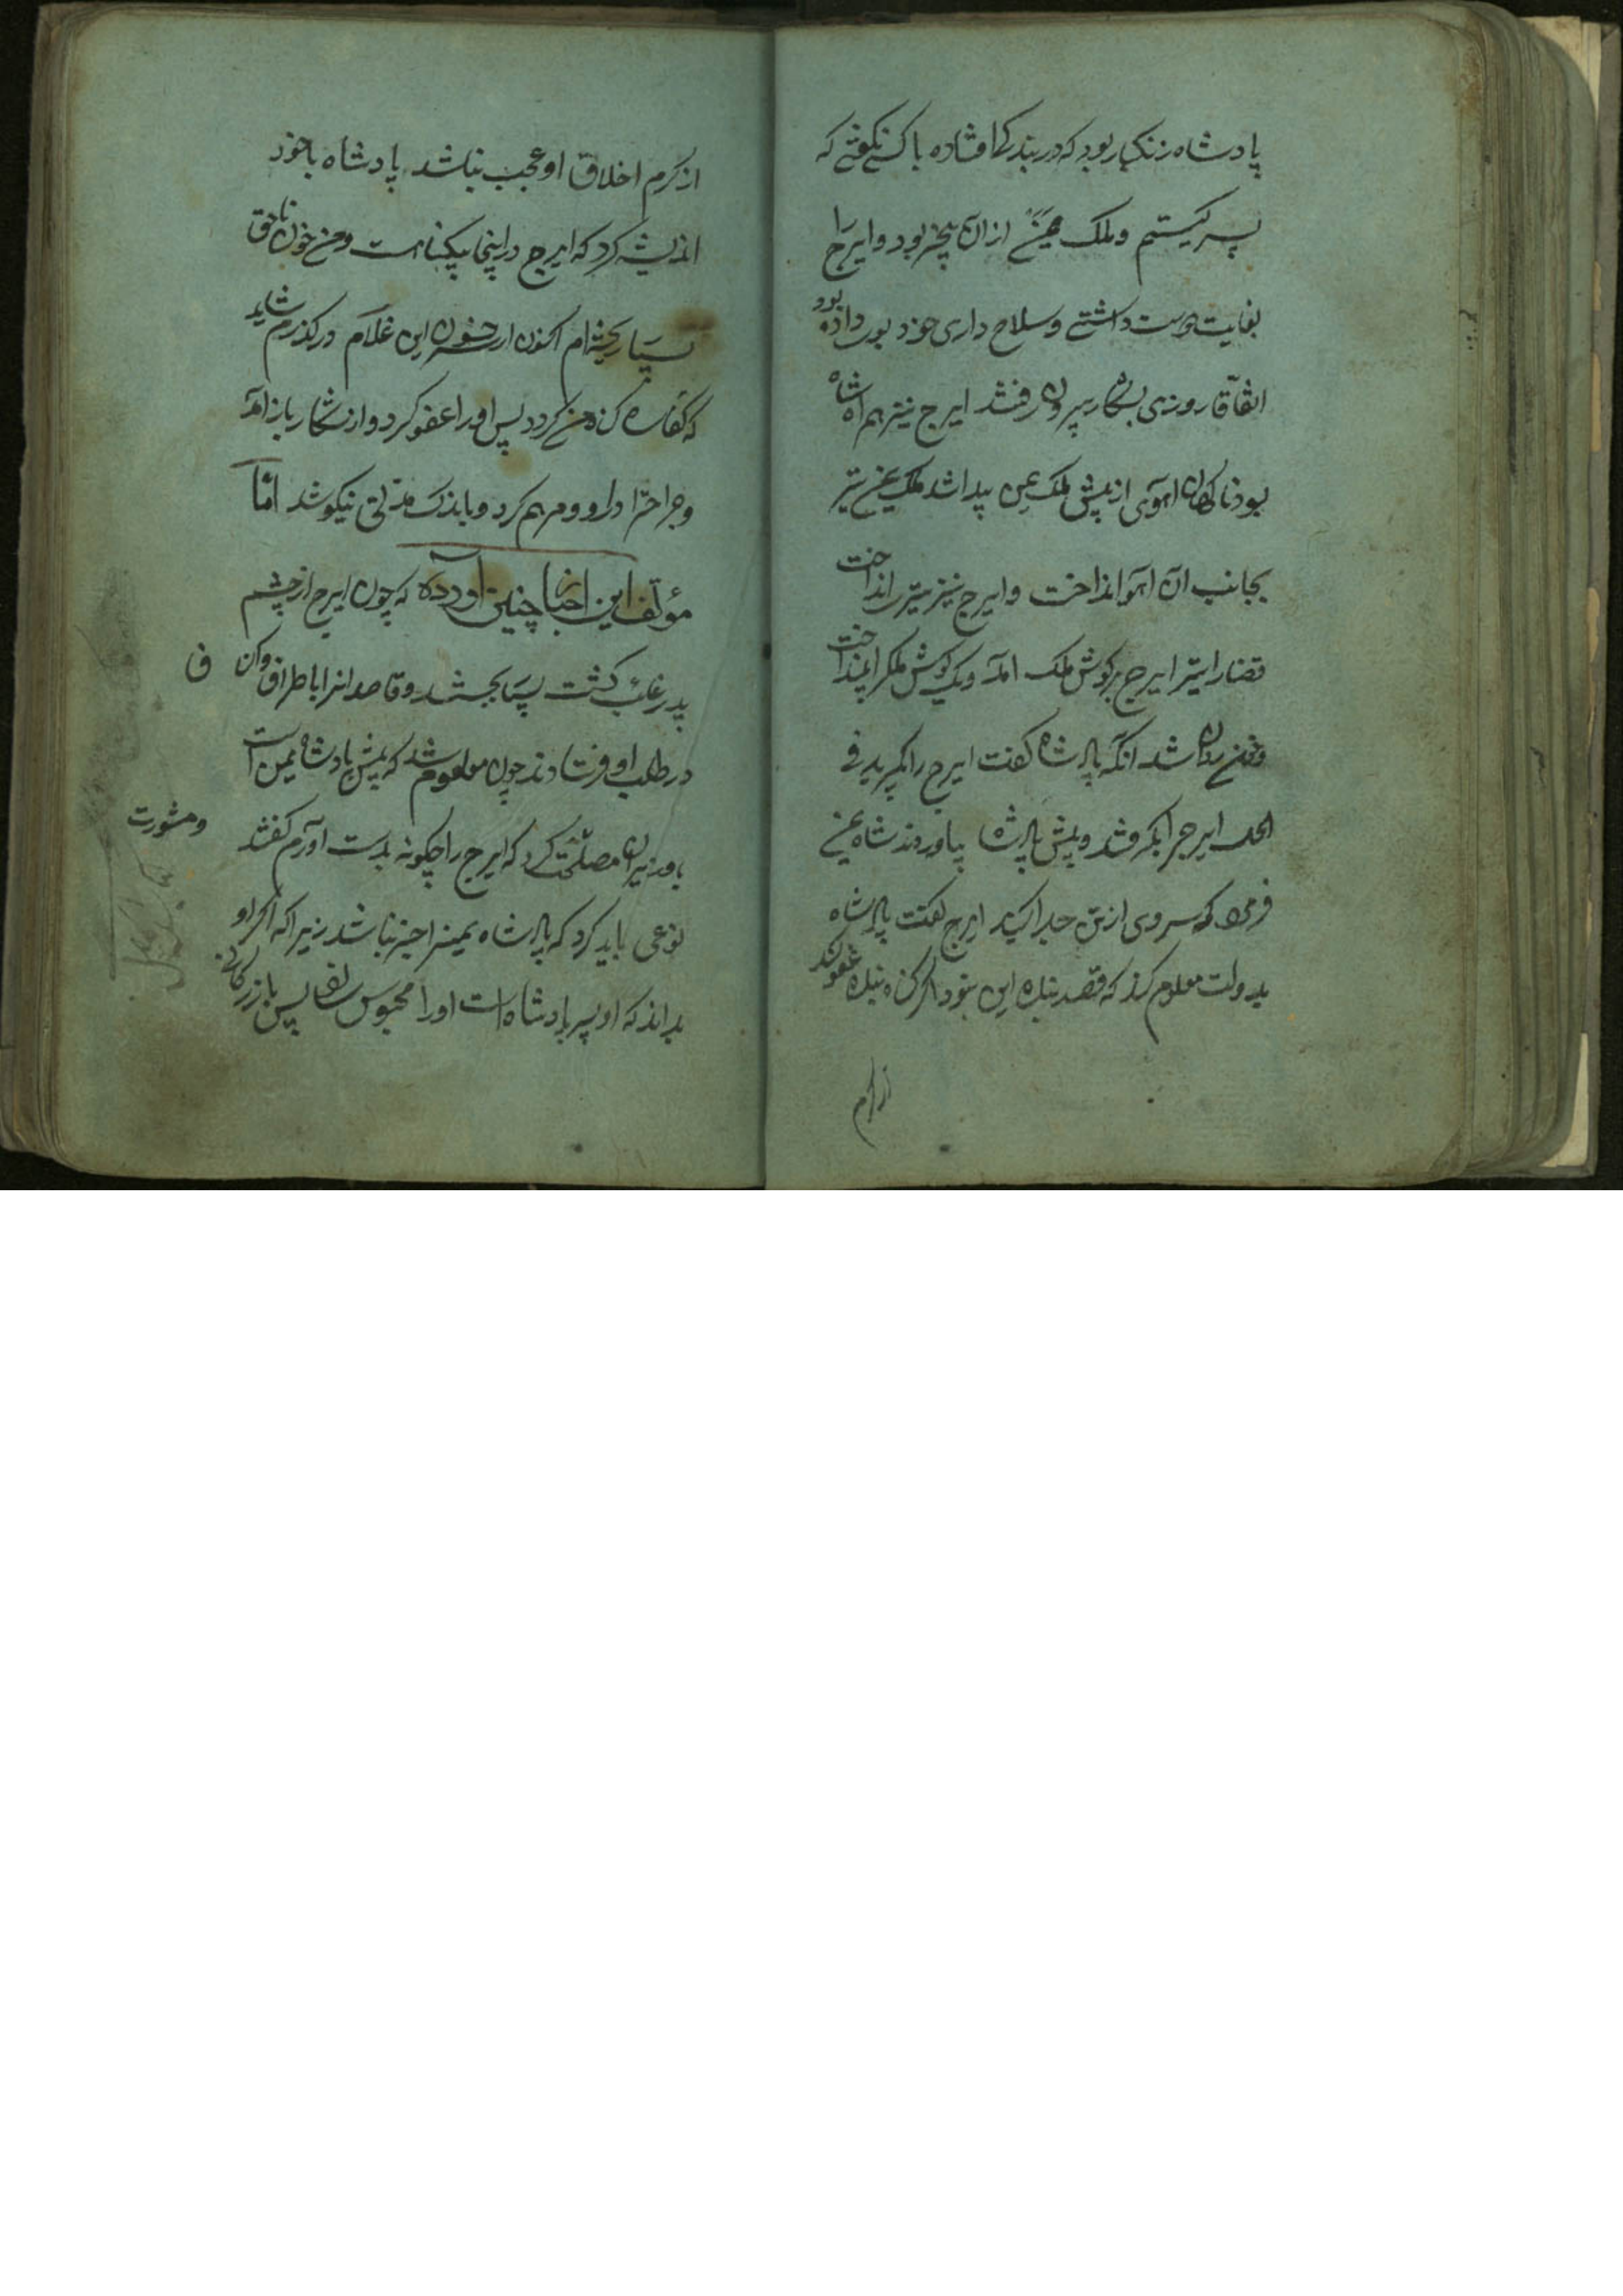 پادشاه زنکبار بود که در بندکی افتاده با کسی نکفتی که
پسر کیستم و ملک یمن ازان بیخبر بود و ایرج را
بغایت دوست داشتی و سلاح داری خود بوی داده بود
اتفاقا روزی بشکار بیرون رفتند ایرج نیز همراه شاه
بود ناکهان اهوی از پیش ملک یمن پیدا شد ملک یمن تیر
بجانب آن اهو انداخت و ایرج نیز تیر انداخت
قضا را تیر ایرج بر کوش ملک امد و یک کوش ملک را بینداخت
و خون روان شد انکه پادشاه کفت ایرج را بکیرید فی
الحال ایرج را بکرفتند و پیش پادشاه بیاوردند شاه یمن
فرمود که سر وی از تن جدا کنید ایرج کفت پادشاه
بدولت معلوم کند که قصد بنده این نبود اکر کناه بنده عفو کند
از کرم
از کرم اخلاق او عجب نباشد پادشاه با خود
اندیشه کرد که ایرج در اینجا بیکناه است و من خون ناحق
بسیار ریخته ام اکنون از سر خون این غلام در کذرم شاید
که کفاره کناه من کردد پس او را عفو کرد و از شکار باز آمد
و جراحت را دارو و مرهم کرد و باندک مدتی نیکو شد اما
مؤلف این اخبار چنین آورده که چون ایرج از چشم
پدر غایب کشت بسیار بجستند و قاصدانرا باطراف و اکناف
در طلب او فرستادند چون معلوم شد که پیش پادشاه یمن است
با وزیران مصلحت کرد که ایرج را چکونه بدست اورم کفتند
و مشورت
نوعی باید کرد که پادشاه یمنرا خبر نباشد زیرا که اکر او
بداند که او پسر پادشاه است او را محبوس سازد پس بازرکانی